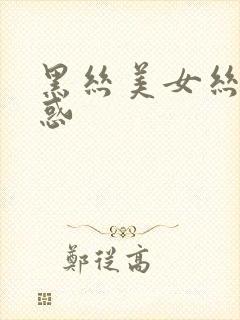 黑丝美女丝
惑
鄭從高